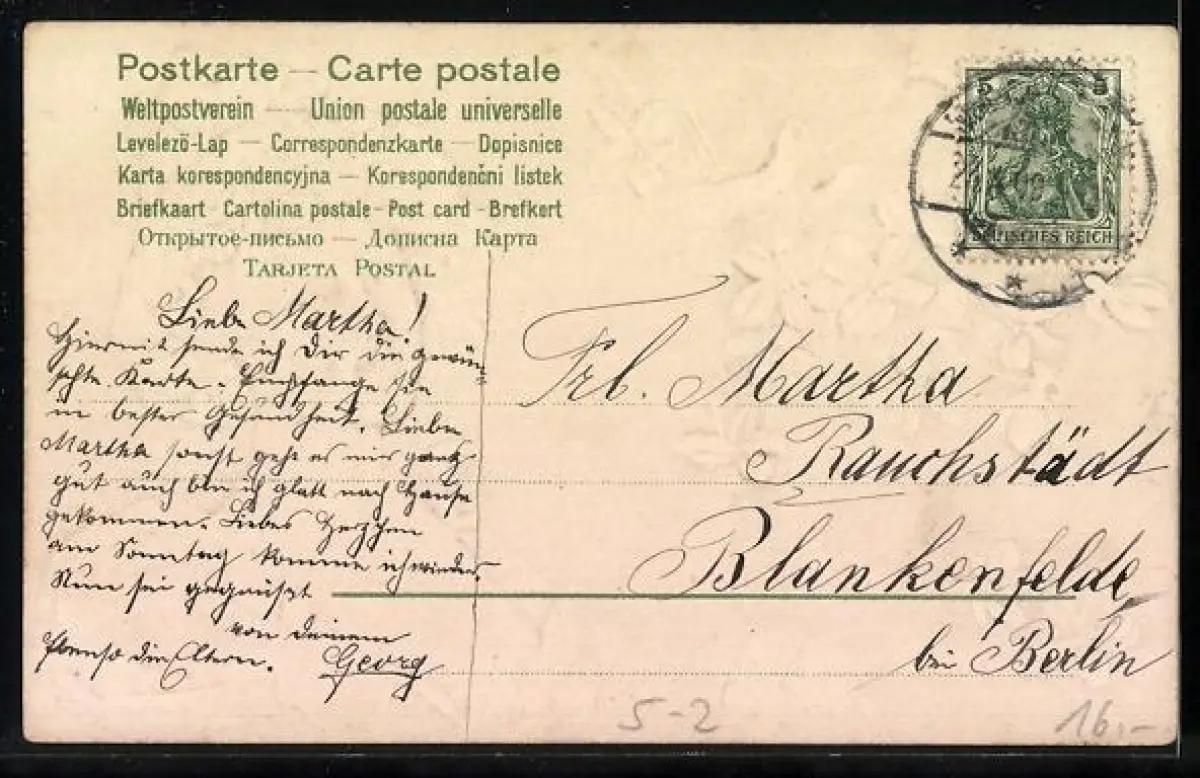 Postkarte — Carte postale
Weltpostverein — Union postale universelle
Levelező-Lap — Correspondenzkarte — Dopisnice
Karta korespondencyjna — Korespondenčni listek
Briefkaart - Cartolina postale - Post card - Brefkort
Открытое-письмо — Дописна Карта
Tarjeta Postal
DEUTSCHES REICH
Liebe Martha!
Hiermit sende ich Dir die gewün-
schte Karte. Empfange sie
in bester Gesundheit. Liebe
Martha sonst geht es mir ganz
gut auch bin ich glatt nach Hause
gekommen. Liebes Herzchen
am Sonntag komme ich wieder
Nun sei gegrüßt
von deinem
Georg
Ebenso die Eltern.
Frl. Martha
Rauchstädt
Blankenfelde
bei Berlin
5-2
16,-